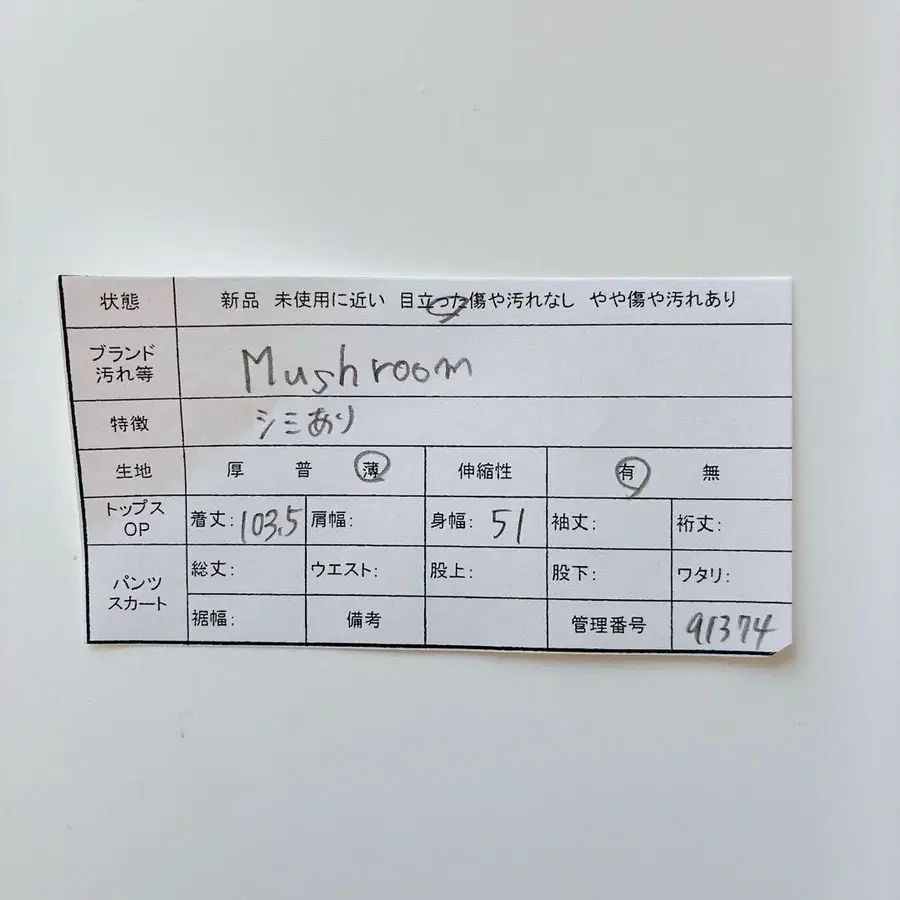 状態 新品 未使用に近い 目立った傷や汚れなし やや傷や汚れあり
ブランド
汚れ等
Mushroom
特徴 シミあり
生地 厚 普 薄 伸縮性 有 無
トップス
OP
着丈: 103.5 肩幅: 身幅: 51 袖丈: 裄丈:
パンツ
スカート
総丈: ウエスト: 股上: 股下: ワタリ:
裾幅: 備考 管理番号 91374